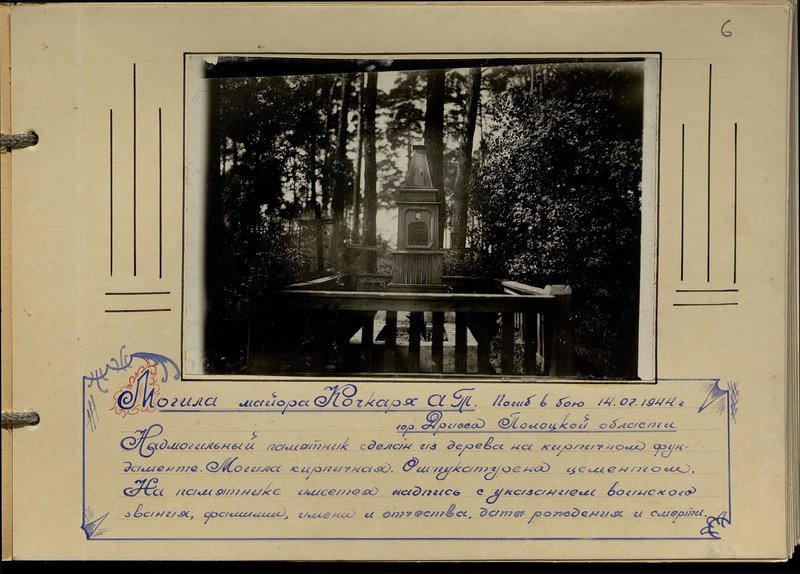 6
Могила майора Кочкаря А.П. Погиб в бою 14.07.1944 г
гор. Дрисса Полоцкой области
Надмогильный памятник сделан из дерева на кирпичном фун-
даменте. Могила кирпичная. Оштукатурена цементом.
На памятнике имеется надпись с указанием воинского
звания, фамилии, имени и отчества, даты рождения и смерти.